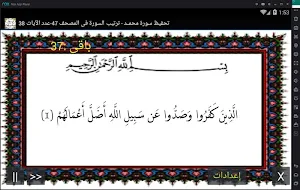 1:53
تحفيظ سورة محمد - ترتيب السورة في المصحف 47-عدد الآيات 38
باقي :37
بِسْمِ اللَّهِ الرَّحْمَنِ الرَّحِيمِ
الَّذِينَ كَفَرُوا وَصَدُّوا عَن سَبِيلِ اللَّهِ أَضَلَّ أَعْمَالَهُمْ (1)
|| >> إعدادات X